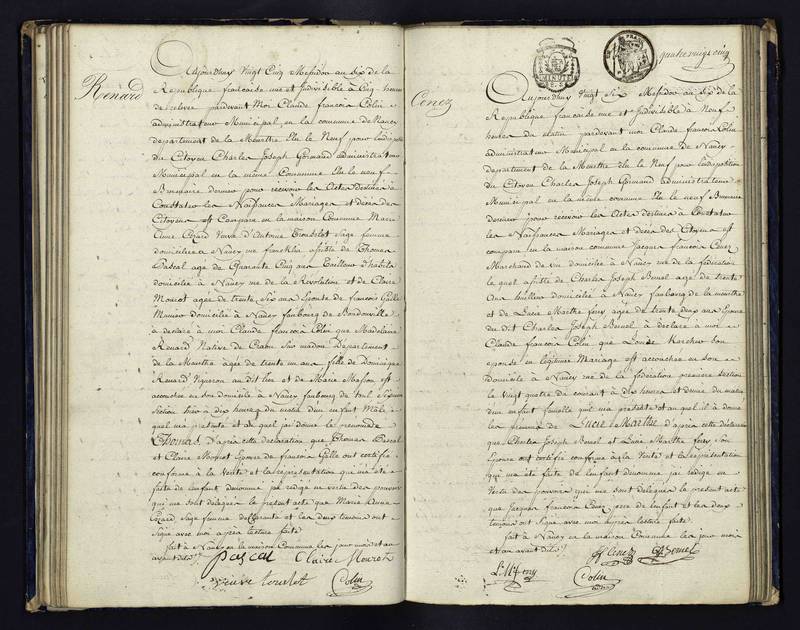 Renard
Aujourdhuy vingt Cinq Messidor an Six de la
Republique francaise une et Indivisible a Cinq heures
de relevée pardevant Moi Claude francois Colin
administrateur Municipal en la commune de Nancy
departement de la Meurthe Elu le Neuf pour
du Citoyen Charles Joseph Gormand administrateur
Municipal en la même Commune Elu le neuf
Brumaire dernier pour recevoir les Actes destinés a
Constater les Naissances Mariages et décès des
Citoyens est Comparu en la maison Commune Marie
Anne Veuve d'Antoine Sage femme
domiciliée a Nancy rue assistée de Thomas
Pascal agé de Quarante Cinq ans Tailleur d'habits
domicilié a Nancy rue de la Révolution et de Claire
agée de trente Six ans Epouse de francois Gille
domicilié a Nancy faubourg de
a déclaré a moi Claude francois Colin que Madelaine
Renard Native de Sur madon Departement
de la Meurthe agée de trente un ans fille de Dominique
Renard Vigneron au dit lieu et de Marie est
accouchée en son domicile a Nancy faubourg de
Section hier a dix heures du matin d'un enfant Male
quel ma présenté et au quel jai donné le prénom de
Thomas D'après cette déclaration que Thomas Pascal
et Claire Epouse de francois Gille ont certifié
conforme a la Vérité et la représentation qui ma été
faite de lenfant dénommé jai rédigé en vertu des pouvoirs
qui me sont délégués le present acte que Marie Anne
Sage femme déclarante et les deux temoins ont
Signé avec moi après lecture faite
fait a Nancy en la maison Commune les jour mois et an
avant dits
Pascal Claire
veuve
Colin
quatre vingt cinq
Cenez
Aujourdhuy vingt Six Messidor an six de la
Republique francaise une et Indivisible a Neuf
heures du matin pardevant moi Claude francois Colin
administrateur Municipal en la commune de Nancy
departement de la Meurthe Elu le Neuf pour
du Citoyen Charles Joseph Gormand administrateur
Municipal en la même commune Elu le neuf Brumaire
dernier pour recevoir les Actes destinés a Constater
les Naissances Mariages et décès des Citoyens est
comparu en la maison commune Jacques francois Cenez
Marchand de domicilié a Nancy rue de la fédération
le quel assisté de Charles Joseph agé de trente
ans domicilié a Nancy faubourg de la meurthe
et de Lucie Marthe agée de trente deux ans Epouse
du dit Charles Joseph a déclaré a moi
Claude francois Colin que Louise son
epouse en légitime Mariage est accouchée en son
domicile a Nancy rue de la fédération première Section
le vingt quatre du courant a dix heures et demie du matin
d'un enfant femelle qui ma presenté et au quel il a donné
les prénoms de Lucie Marthe d'après cette déclaration
que Charles Joseph et Lucie Marthe son
Epouse ont certifié conforme a la Verité et la représentation
qui ma été faite de lenfant dénommé jai rédigé en
Vertu des pouvoirs qui me sont délégués le présent acte
que Jacques francois Cenez pere de lenfant et les deux
temoins ont Signé avec moi après lecture faite
fait a Nancy en la maison Commune les jour mois
et an avant dits
Cenez
Colin